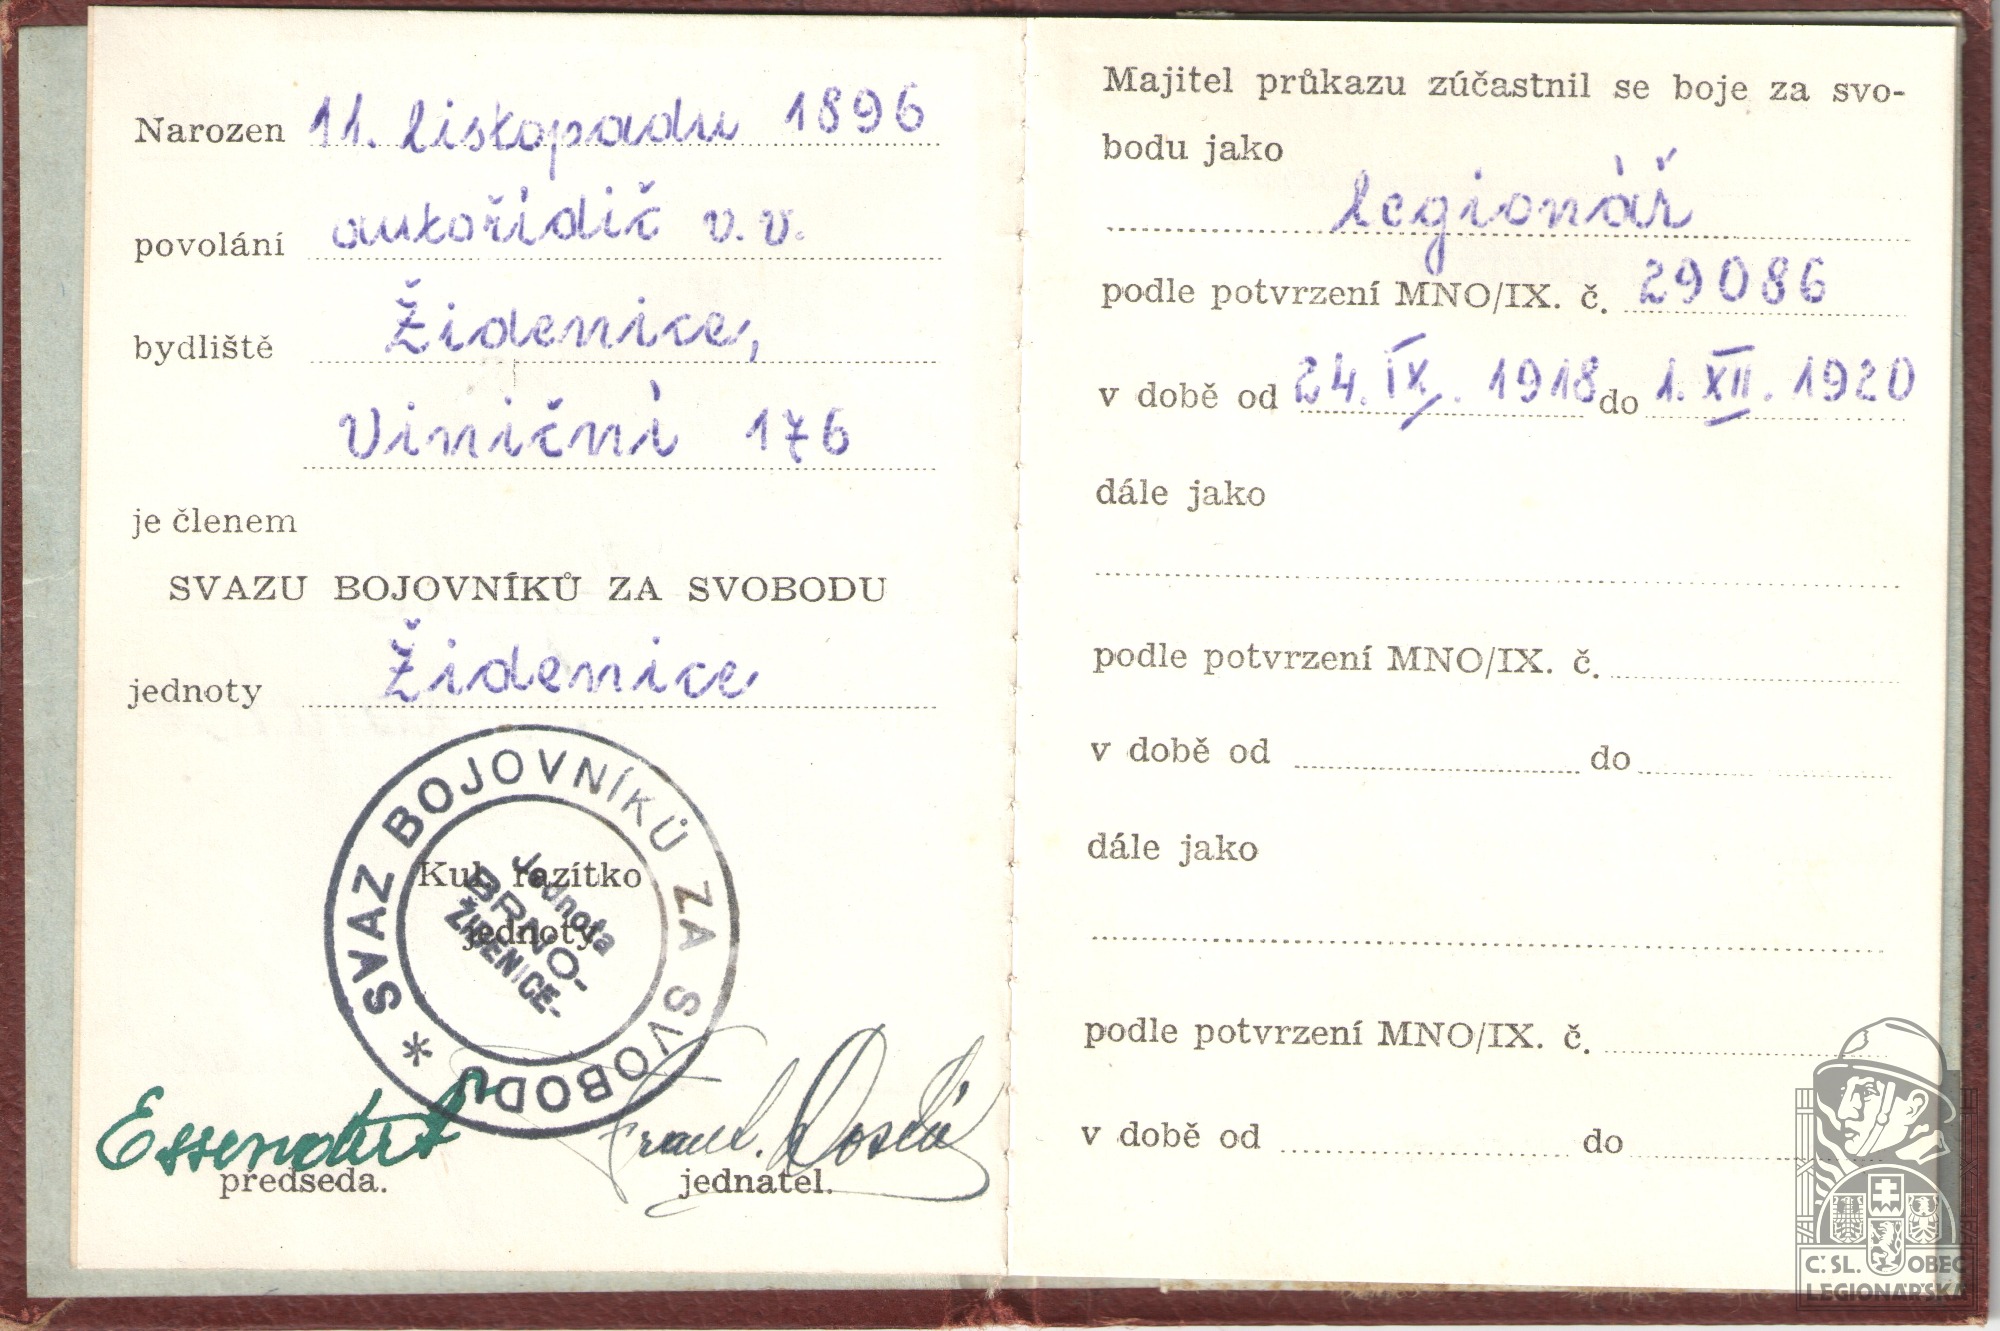 Narozen 11. listopadu 1896
povolání autořidič v.v.
bydliště Židenice,
Viniční 176
je členem
SVAZU BOJOVNÍKŮ ZA SVOBODU
jednoty Židenice
* SVAZ BOJOVNÍKŮ ZA SVOBODU
Jednota
BRNO-
ŽIDENICE-
Kul. razítko
jednoty
předseda.
Frant.
jednatel.
Majitel průkazu zúčastnil se boje za svo-
bodu jako
legionář
podle potvrzení MNO/IX. č. 29086
v době od 24. IX. 1918 do 1. XII. 1920
dále jako
podle potvrzení MNO/IX. č.
v době od do
dále jako
podle potvrzení MNO/IX. č.
v době od do
Č. SL. OBEC
LEGIONÁŘSKÁ